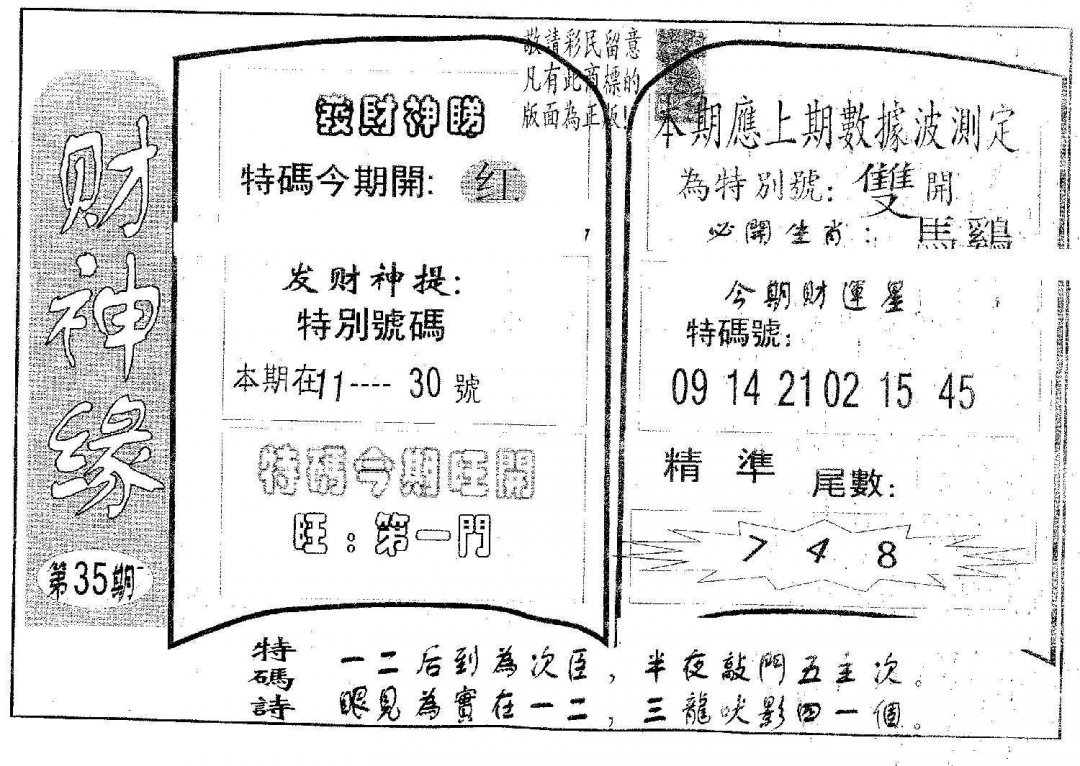 财神缘
第35期
敬請彩民留意
凡有此商標的
版面為正版!
發財神睇
特碼今期開: 红
发财神提:
特別號碼
本期在11----30號
特碼今期旺開
旺:第一門
本期應上期數據波測定
為特別號: 雙開
必開生肖: 馬鷄
今期財運星
特碼號:
09 14 21 02 15 45
精準 尾數:
7 4 8
特碼詩
一二后到為次臣,半夜敲門五主次。
眼見為實在一二,三龍吠影四一個。